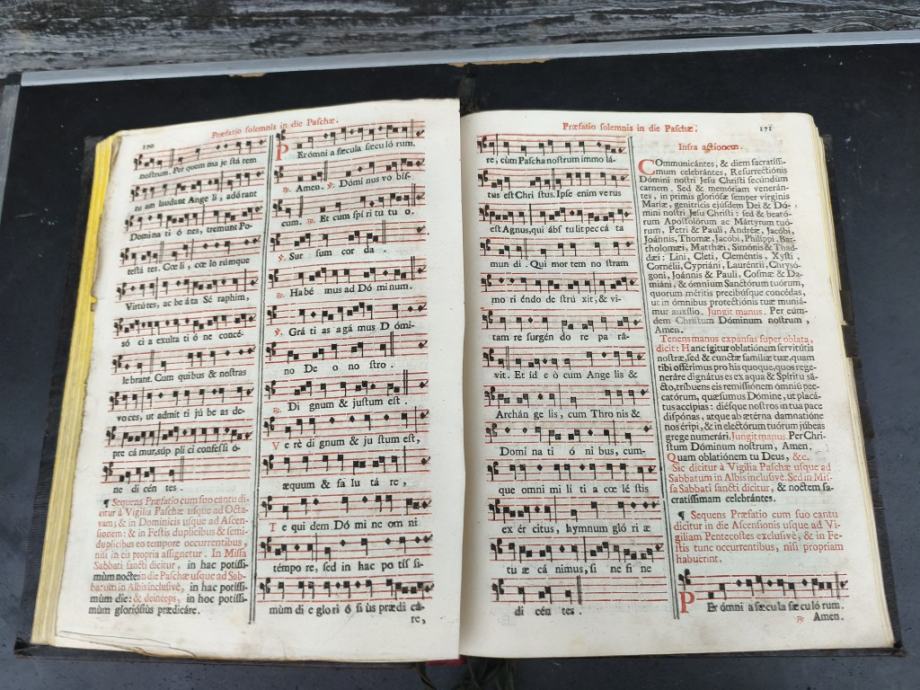 Præfatio solemnis in die Paschæ.
nostrum. Per quem ma je stá tem
tu am laudant Ange li, adó rant
Domina ti ó nes, tremunt Po-
testá tes. Cœ li, cœ lo rúmque
Virtútes, ac be áta Sé raphim,
só ci a exulta ti ó ne concé-
le brant. Cum quibus & nostras
vo ces, ut admit ti jú be as de-
pre cá mur, súp pli ci confessi ó-
ne di cén tes.
¶ Sequens Præfatio cum suo cantu di-
citur à Vigilia Paschæ usque ad Octa-
vam; & in Dominicis usque ad Ascen-
sionem: & in Festis duplicibus & semi-
duplicibus eo tempore occurrentibus,
nisi in eis propria assignetur. In Missa
Sabbati sancti dicitur, in hac potissi-
mùm nocte: in die Paschæ usque ad Sab-
batum in Albis inclusivè, in hac potissi-
mùm die: & deinceps, in hoc potissi-
mùm gloriósiùs prædicáre.
PErómni a sæcula sæcu ló rum.
℟. Amen. ℣. Dómi nus vo bis-
cum. ℟. Et cum spí ri tu tu o.
℣. Sur sum cor da.
℟. Ha bé mus ad Dó minum.
℣. Grá ti as agá mus D ómi-
no De o no stro.
℟. Di gnum & justum est.
V e rè di gnum & ju stum est,
æquum & sa lu tá re,
T e qui dem Dó mi ne om ni
témpo re, sed in hac po tís si-
mùm di e glori ó si ùs prædi cá-
re,
Præfatio solemnis in die Paschæ. 171
re, cùm Pascha nostrum immo lá-
tus est Chri stus. Ipse enim ve rus
est Agnus, qui ábs tu lit pec cá ta
mun di. Qui mor tem no stram
mo ri éndo de strú xit, & vi-
tam re surgén do re pa rá-
vit. Et id e ò cum Ange lis &
Archán ge lis, cum Thro nis &
Domi na ti ó ni bus, cum-
que omni mi lí ti a cœ lé stis
ex ér citus, hymnum gló ri æ
tu æ cá nimus, si ne fi ne
di cén tes.
Infra actionem.
COmmunicántes, & diem sacratíssi-
mum celebrántes, Resurrectiónis
Dómini nostri Jesu Christi secúndùm
carnem. Sed & memóriam venerán-
tes, in primis gloriósæ semper virginis
Mariæ, genitrícis ejúsdem Dei & Dó-
mini nostri Jesu Christi: sed & beató-
rum Apostolórum ac Mártyrum tuó-
rum, Petri & Pauli, Andréæ, Jacóbi,
Joánnis, Thomæ, Jacóbi, Philíppi, Bar-
tholomæi, Matthæi, Simónis & Thad-
dæi: Lini, Cleti, Cleméntis, Xysti,
Cornélii, Cypriáni, Lauréntii, Chrysó-
goni, Joánnis & Pauli, Cosmæ & Da-
miáni, & ómnium Sanctórum tuórum,
quorum méritis precibúsque concédas,
ut in ómnibus protectiónis tuæ muniá-
mur auxílio. Jungit manus. Per eúm-
dem Christum Dóminum nostrum,
Amen.
Tenens manus expansas super oblata,
dicit: Hanc ígitur oblatiónem servitútis
nostræ, sed & cunctæ famíliæ tuæ, quam
tibi offérimus pro his quoque, quos rege-
neráre dignátus es ex aqua & Spíritu sá-
cto, tríbuens eis remissiónem ómniū pec-
catórum, quæsumus Dómine, ut placá-
tus accípias: diésque nostros in tua pace
dispónas, atque ab ætérna damnatióne
nos éripi, & in electórum tuórum júbeas
grege numerári. Jungit manus. Per Chri-
stum Dóminum nostrum, Amen.
Quam oblatiónem tu Deus, &c.
Sic dicitur à Vigilia Paschæ usque ad
Sabbatum in Albis inclusivè. Sed in Mis-
sa Sabbati sancti dicitur, & noctem sa-
cratíssimam celebrántes.
¶ Sequens Præfatio cum suo cantu
dicitur in die Ascensionis usque ad Vi-
giliam Pentecostes exclusivè, & in Fe-
stis tunc occurrentibus, nisi propriam
habuerint.
PEr ómni a sæ cu la sæ cu ló rum.
℟. Amen.